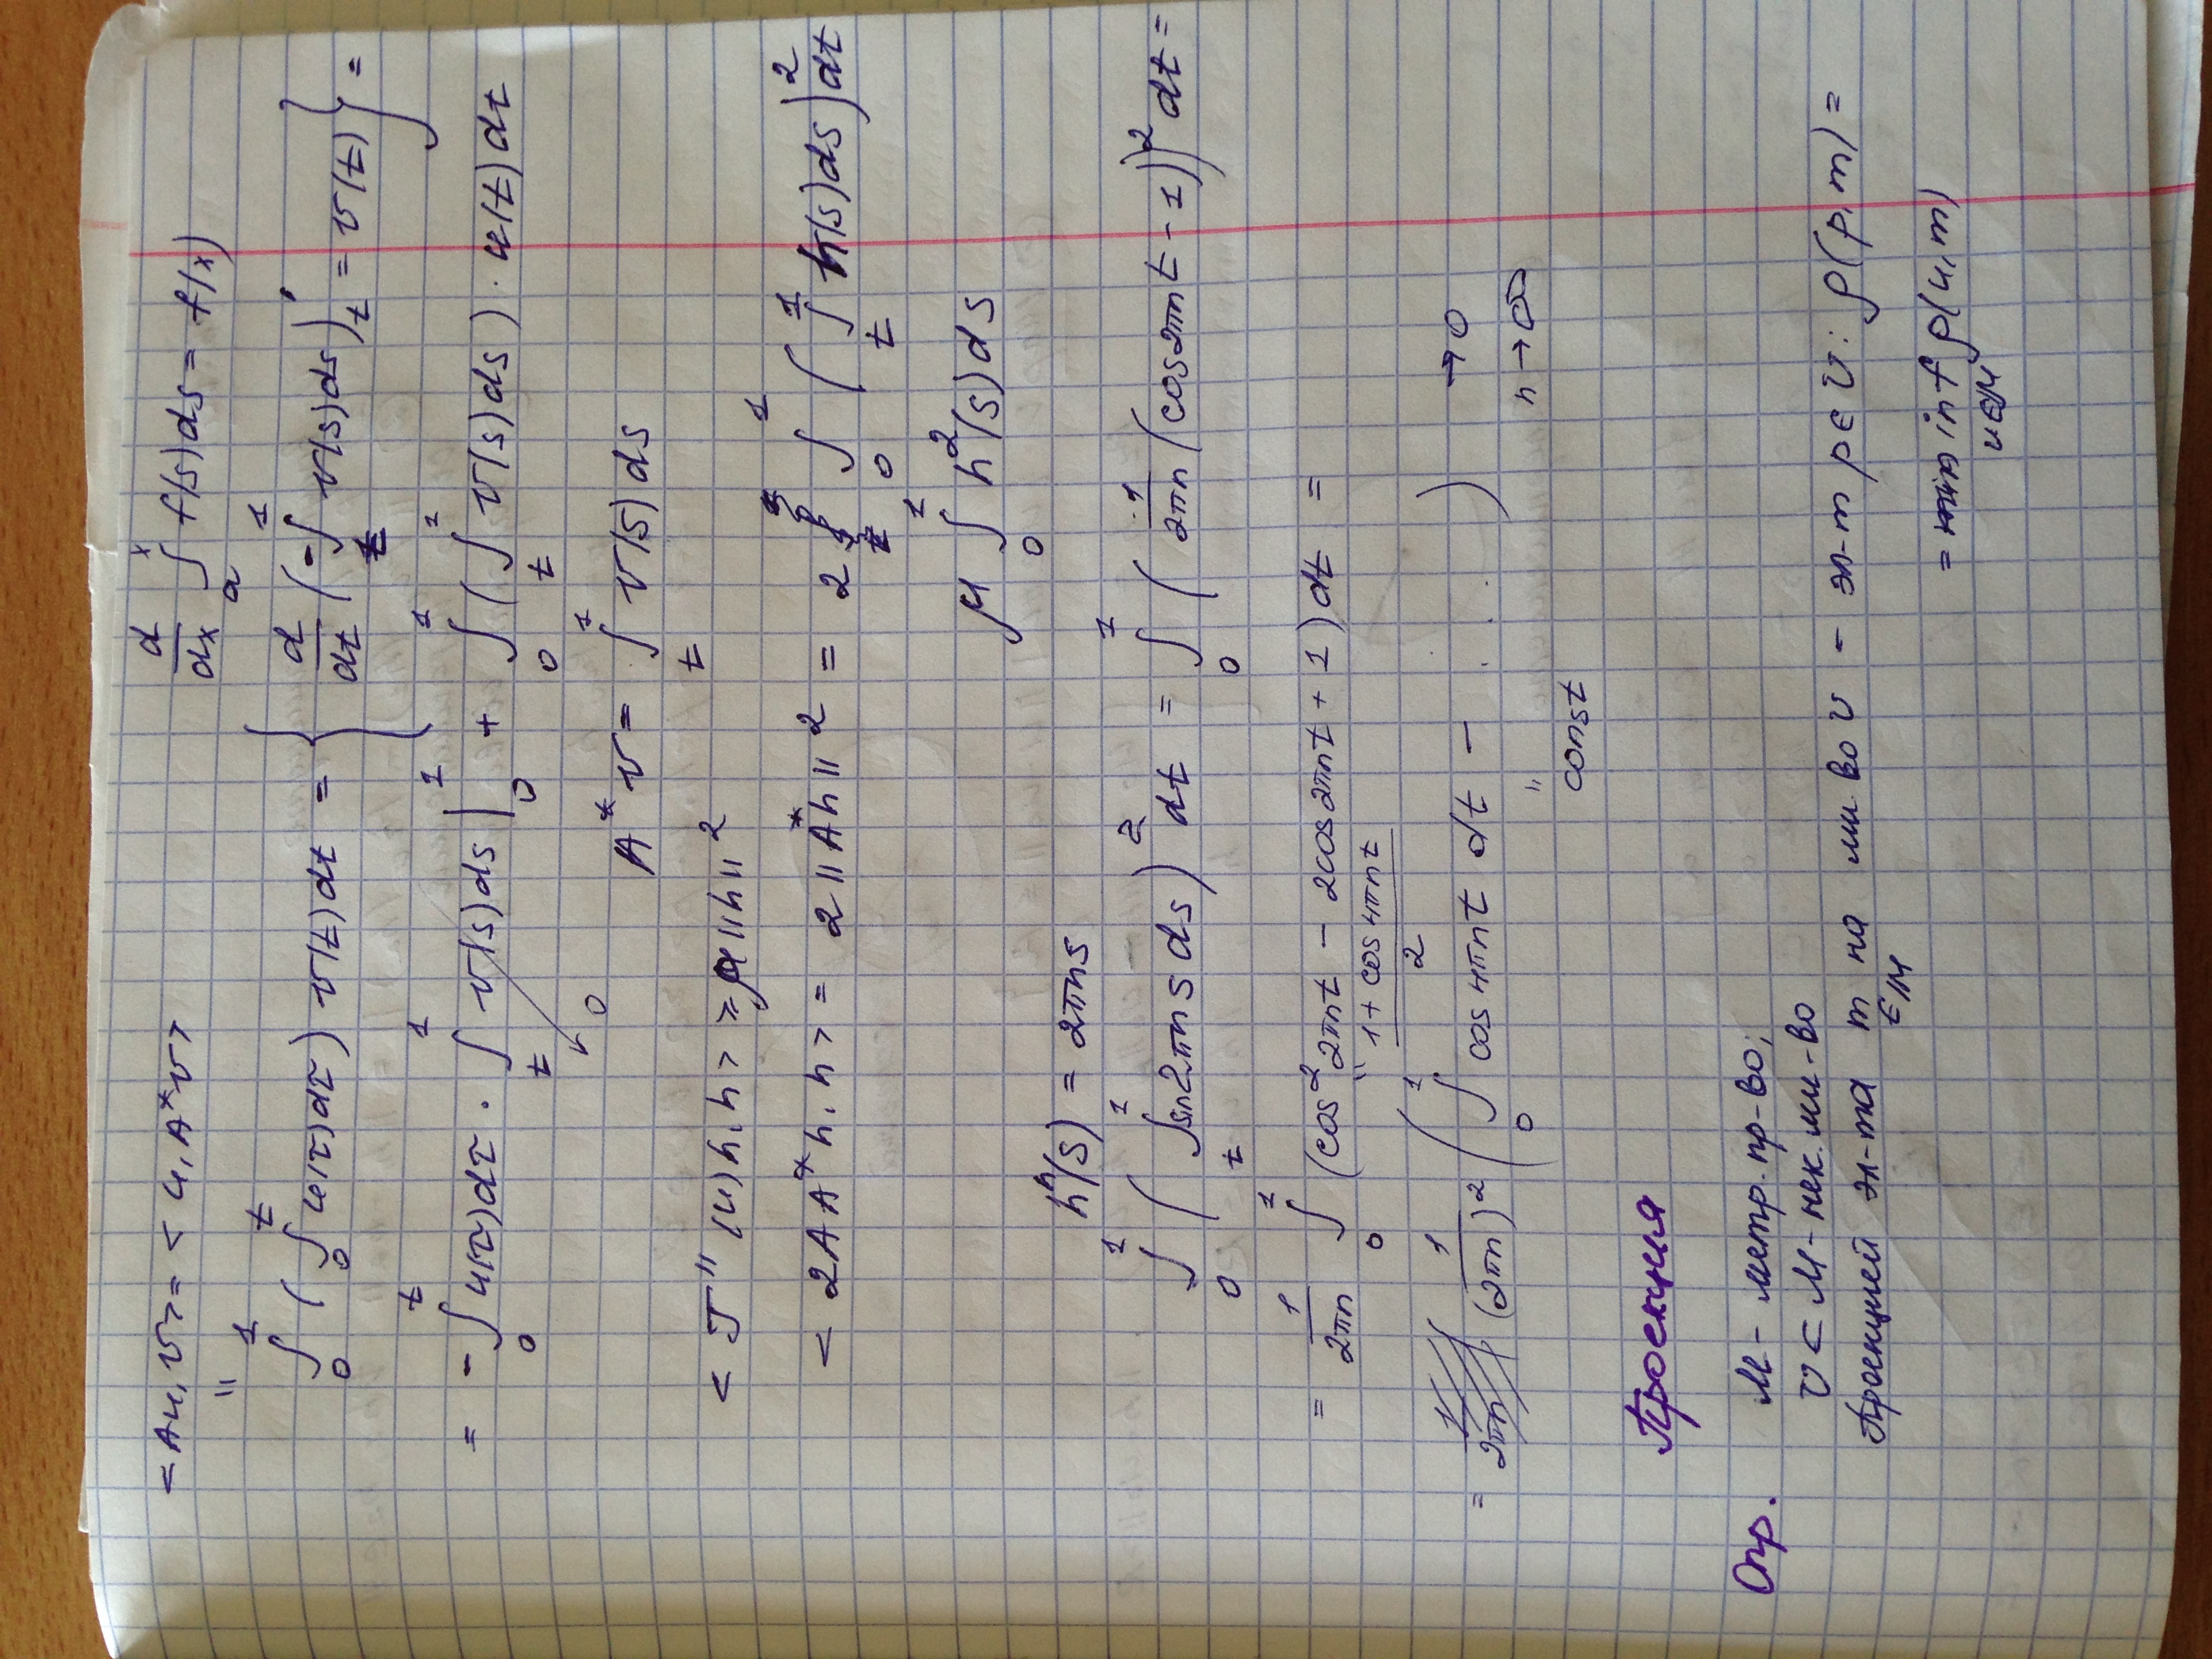 <Au,v> = <u,A*v>   d/dx ∫ₐˣ f(s)ds = f(x)
"
∫₀¹ ( ∫₀ᵗ u(τ)dτ ) v(t)dt = { d/dt ( -∫ₜ¹ v(s)ds )'ₜ = v(t) } =
= - ∫₀ᵗ u(τ)dτ · ∫ₜ¹ v(s)ds |₀¹ + ∫₀¹ ( ∫ₜ¹ v(s)ds ) · u(t)dt
0
A*v = ∫ₜ¹ v(s)ds
<J''(u)h,h> ≥ μ||h||²
<2AA*h,h> = 2||A*h||² = 2 ∫₀¹ ( ∫ₜ¹ h(s)ds )² dt
μ ∫₀¹ h²(s)ds
hⁿ(s) = 2πns
∫₀¹ ( ∫ₜ¹ sin2πns ds )² dt = ∫₀¹ ( -1/2πn (cos2πnt - 1) )² dt =
= 1/2πn ∫₀¹ (cos²2πnt - 2cos2πnt + 1)dt =
" 1+cos4πnt / 2
= 1/(2πn)² ( ∫₀¹ cos4πnt dt - . . . ) → 0
n→∞
" const
Проекция
Опр. М - метр. пр-во,
U ⊂ М - нек. мн-во
Проекцией эл-та m на мн-во U - эл-т p ∈ U : ρ(p,m) =
∈ M
= inf ρ(u,m)
u∈M